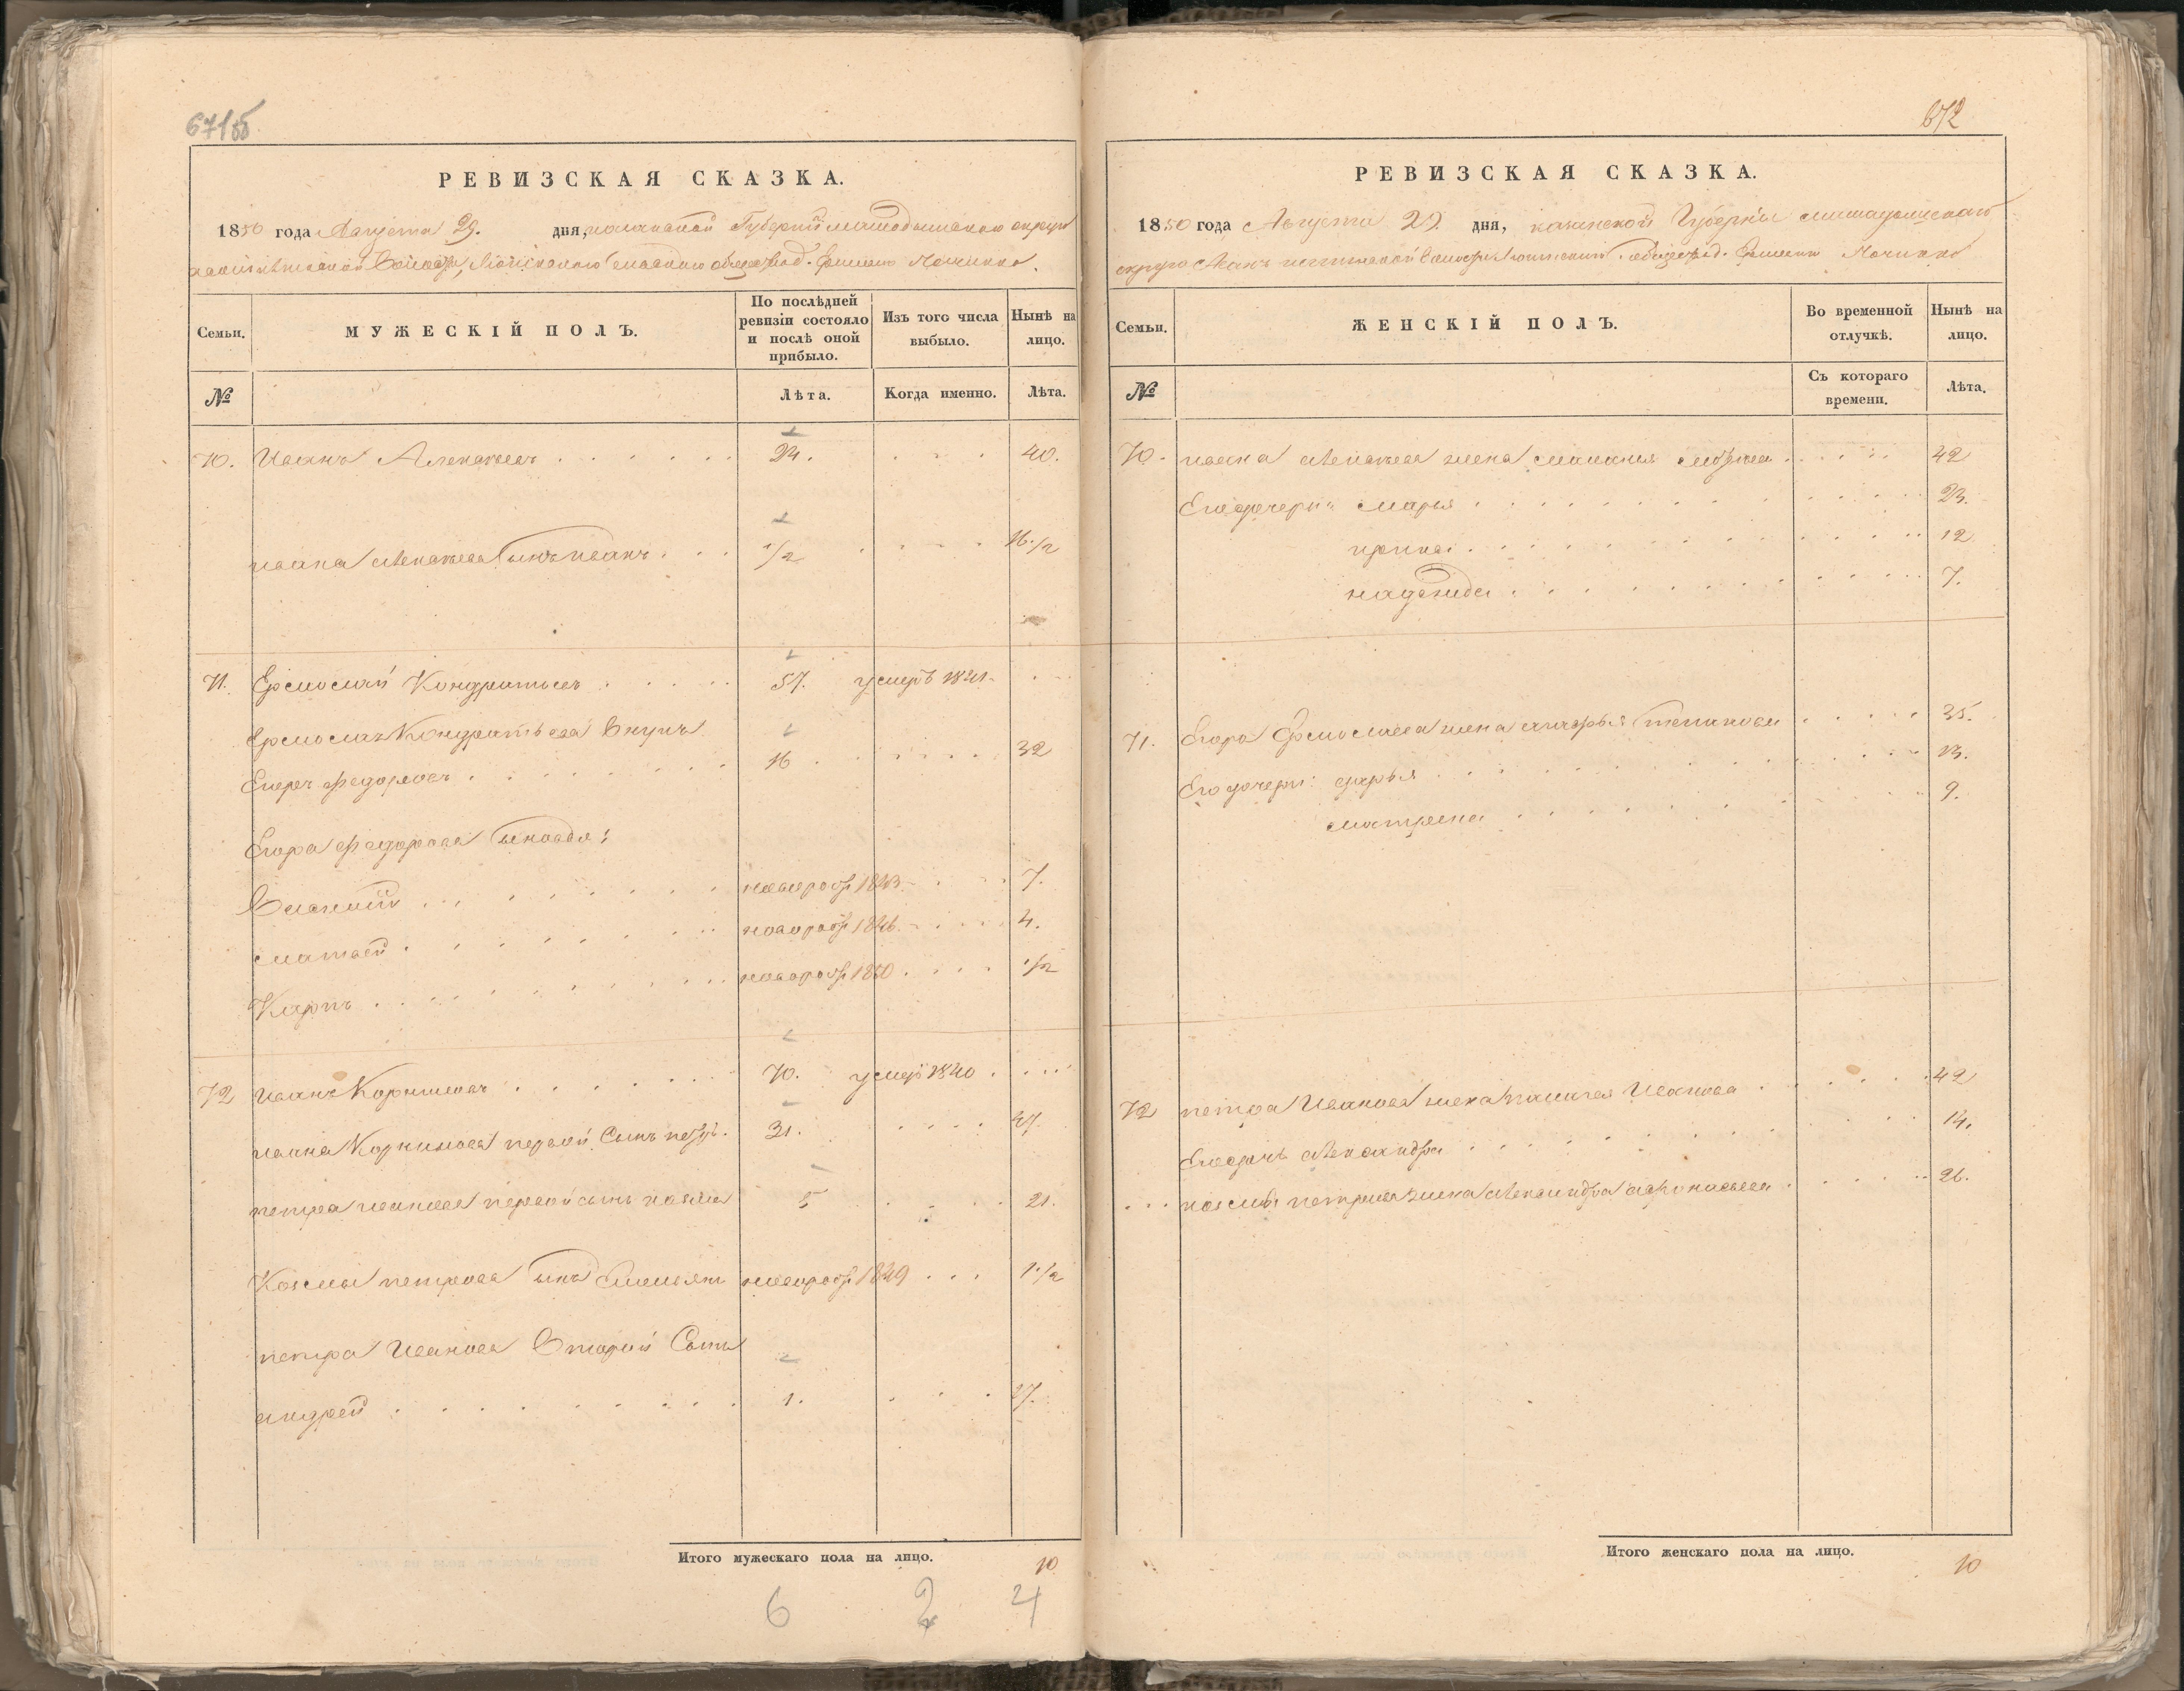 671об
РЕВИЗСКАЯ СКАЗКА.
1850 года Августа 29. дня, казанской Губернии мамадышскаго округа
волости, сельскаго общества д. Починка.
Семьи.
МУЖЕСКІЙ ПОЛЪ.
По послѣдней ревизіи состояло и послѣ оной прибыло.
Изъ того числа выбыло.
Нынѣ на лицо.
№
Лѣта.
Когда именно.
Лѣта.
70. Иванъ Алексѣевъ 24. 40.
ивана алексѣева сынъ иванъ 1/2 16 1/2
71. Ермолай Кондратьевъ 57. умеръ 1841
Ермолая Кондратьева Внукъ
Егоръ федоровъ 16 32
Егора федорова сыновья:
Василий новорож 1843 7.
матвей новорож 1846 4.
Карпъ новорож 1850 1/2
72 иванъ Корниловъ 70. умеръ 1840
ивана Корнилова первой Сынъ петръ 31. 47
петра иванова первой сынъ козма 5 21.
Козмы петрова сынъ Емельянъ новорож 1849 1 1/2
петра Иванова Второй Сынъ
андрей 1. 17.
Итого мужескаго пола на лицо. 10
6 2 4
672
РЕВИЗСКАЯ СКАЗКА.
1850 года Августа 29 дня, казанской Губерніи мамадышскаго
округа волости общества д. Починка
Семьи.
ЖЕНСКІЙ ПОЛЪ.
Во временной отлучкѣ.
Нынѣ на лицо.
№
Съ котораго времени.
Лѣта.
70. ивана алексѣева жена маланья 42
Его дочери: марья 23.
ирина 12
надежда 7.
71. Егора Ермолаева жена степанова 35.
Его дочери: дарья 13.
матрена 9.
72 петра Иванова жена Иванова 42
Его дочь александра 14.
козмы петрова жена александра афонасьева 26.
Итого женскаго пола на лицо. 10